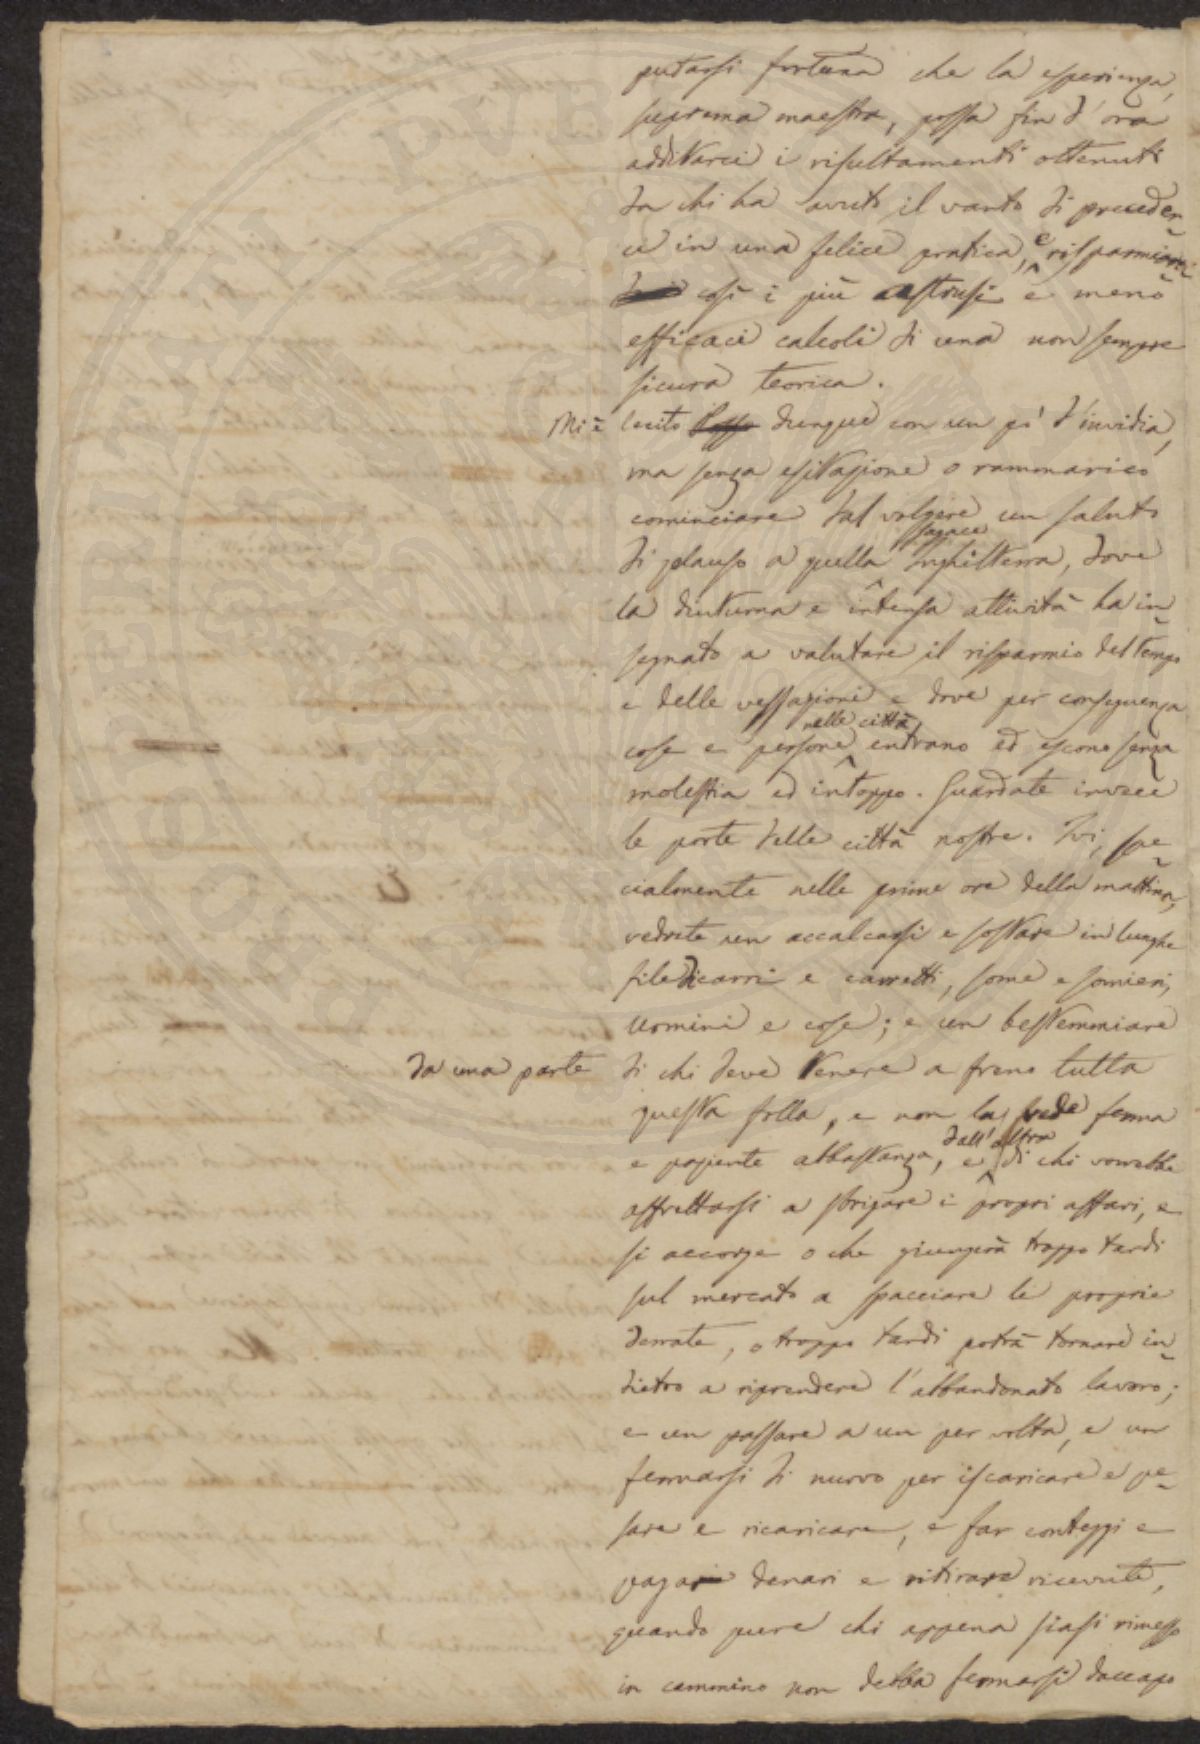 putarsi fortuna che la esperienza,
suprema maestra, possa fin d'ora
additarci i risultamenti ottenuti
da chi ha avuto il vanto di preceder-
ci in una felice pratica, e risparmiarci
così i più astrusi e meno
efficaci calcoli di una non sempre
sicura teorica.
Mi è lecito Posso dunque con un po' d'invidia,
ma senza esitazione o rammarico
cominciare dal volgere un saluto
sagace
di plauso a quella Inghilterra, dove
la diuturna e intensa attività ha in-
segnato a valutare il risparmio del tempo
e delle vessazioni e dove per conseguenza
nelle città
cose e persone entrano ed escono senza
molestia ed intoppo. Guardate invece
le porte delle città nostre. Ivi, spe-
cialmente nelle prime ore della mattina,
vedrete un accalcarsi e sostare in lunghe
file di carri e carretti, some e somieri,
uomini e cose; e un bestemmiare
da una parte di chi deve tenere a freno tutta
questa folla, e non la vede ferma
dall'altra
e paziente abbastanza, e di chi vorrebbe
affrettarsi a sbrigare i propri affari, e
si accorge o che giungerà troppo tardi
sul mercato a spacciare le proprie
derrate, o troppo tardi potrà tornare in-
dietro a riprendere l'abbandonato lavoro;
e un passare a un per volta, e un
fermarsi di nuovo per iscaricare e pe-
sare e ricaricare, e far conteggi e
pagar denari e ritirare ricevute,
quando pure chi appena siasi rimesso
in cammino non debba fermarsi daccapo